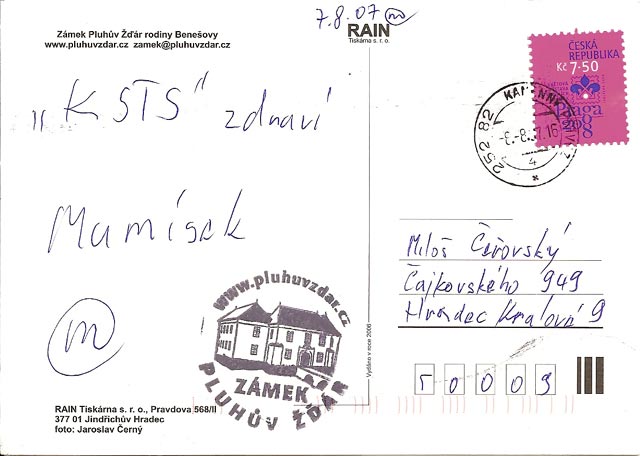 7.8.07 m
Zámek Pluhův Žďár rodiny Benešovy
www.pluhuvzdar.cz zamek@pluhuvzdar.cz
RAIN
Tiskárna s. r. o.
ČESKÁ
REPUBLIKA
Kč 7·50
Praga
2008
252 82
-8.-8.07.16
4
„KSTS" zdraví
Mamísek
m
www.pluhuvzdar.cz
ZÁMEK
PLUHŮV ŽĎÁR
Vydáno v roce 2006
Miloš Čeřovský
Čajkovského 949
Hradec Králové 9
50009
RAIN Tiskárna s. r. o., Pravdova 568/II
377 01 Jindřichův Hradec
foto: Jaroslav Černý